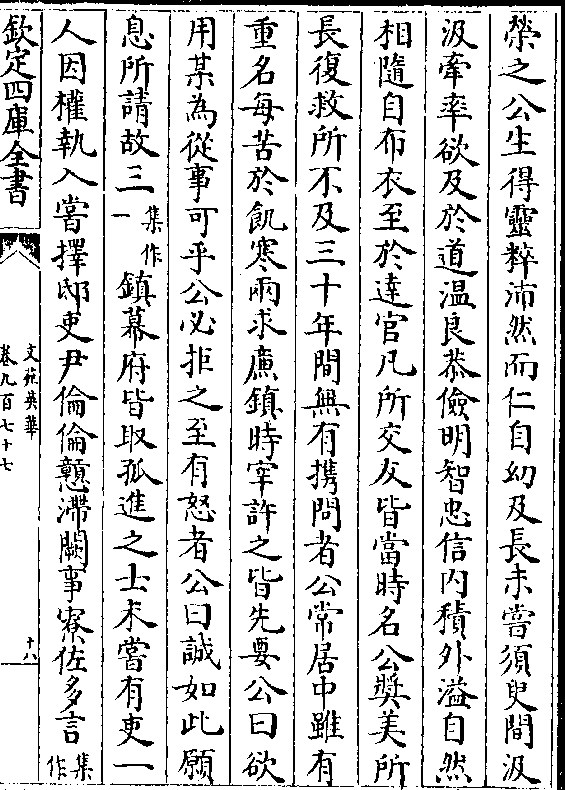 榮之公生得靈粹沛然而仁自幼及長未嘗須臾間汲
汲牽率欲及於道温良恭儉明智忠信内積外溢自然
相隨自布衣至於達官凡所交友皆當時名公奬美所
長復救所不及三十年間無有携問者公常居中雖有
重名每苦於飢寒兩求廉鎮時宰許之皆先要公曰欲
用某為從事可乎公必拒之至有怒者公曰誠如此願
息所請故三
集作
一
鎮幕府皆取孤進之士未嘗有吏一
人因權執入嘗擇邸吏尹倫倫戇滯闕事寮佐多言
集
作
欽定四庫全書
文苑英華
卷九百七十七
十八